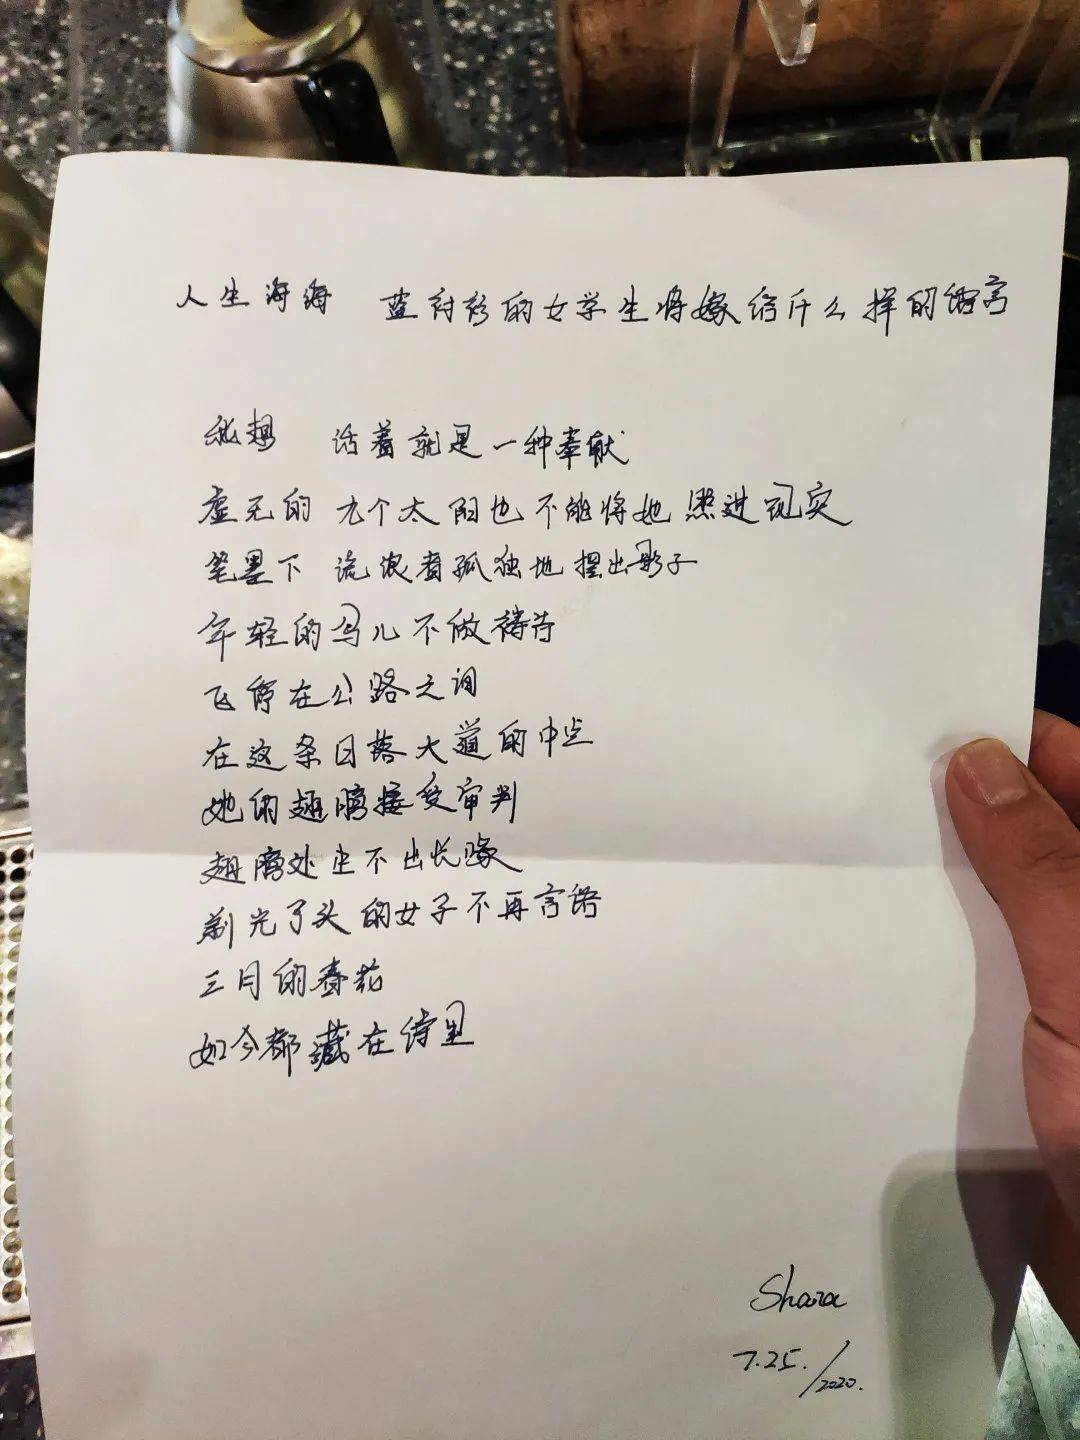 人生海海 蓝衬衫的女学生将嫁给什么样的
我想 话着就是一种奉献
虚无的 九个太阳也不能将她照进现实
笔墨下 流浪者孤独地摆出影子
年轻的马儿不做祷告
飞停在公路之间
在这条日落大道的中点
她的翅膀接受审判
翅膀处生不出长喙
剃光了头的女子不再言语
三月的春花
如今都藏在诗里
Shara
7.25./2020.